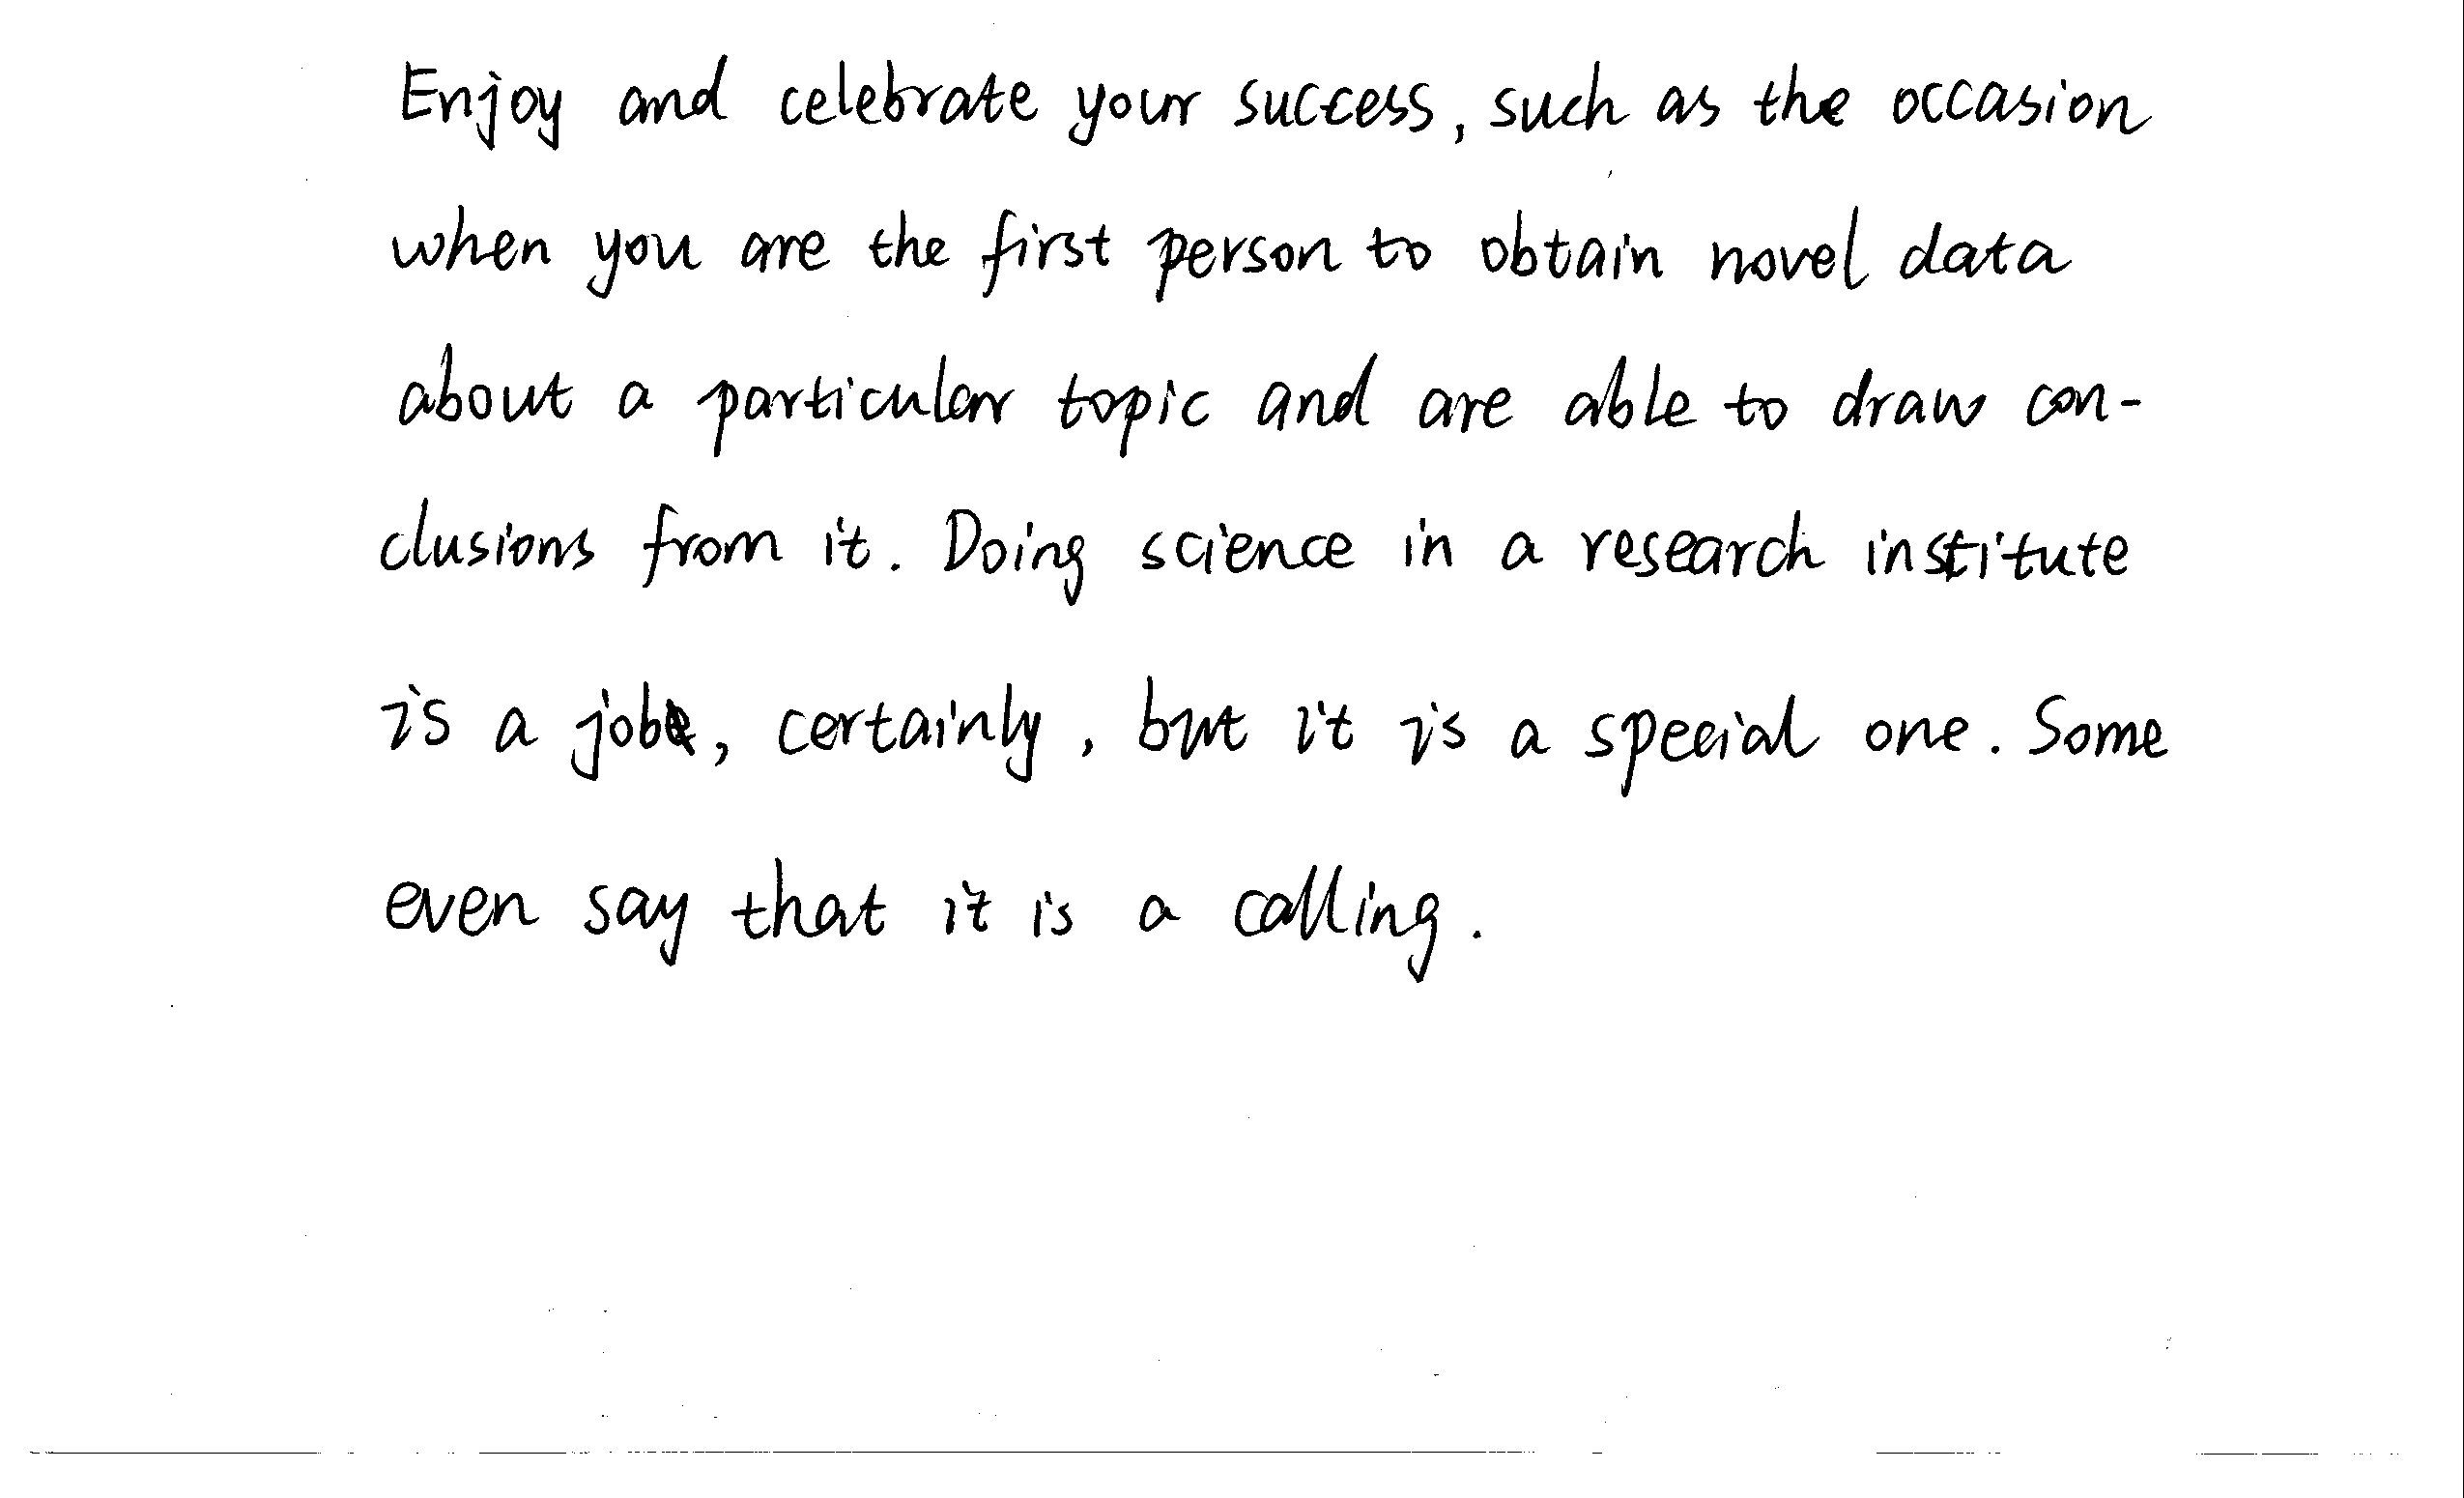 Enjoy and celebrate your success, such as the occasion
when you are the first person to obtain novel data
about a particular topic and are able to draw con-
clusions from it. Doing science in a research institute
is a job, certainly, but it is a special one. Some
even say that it is a calling.